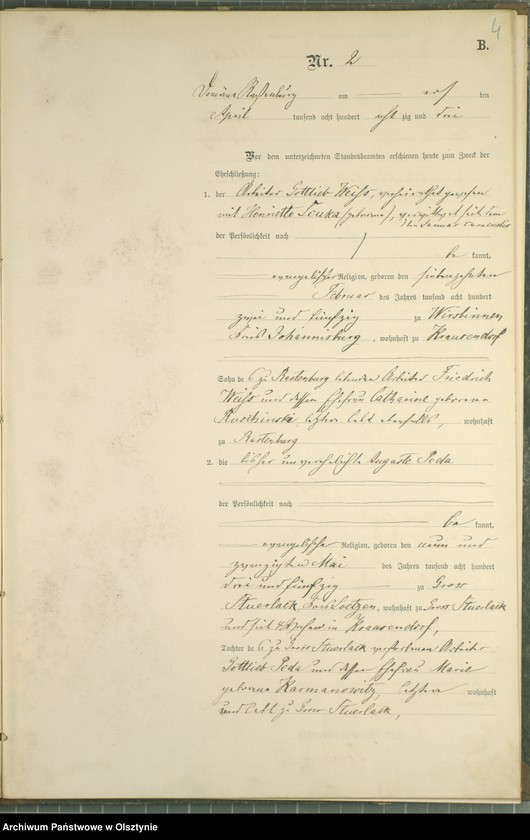 4
B.
Nr. 2
Domäne Rastenburg am elf ten
April tausend acht hundert acht zig und drei
Vor dem unterzeichneten Standesbeamten erschienen heute zum Zweck der
Eheschließung:
1. der Arbeiter Gottlieb Weiss, verheirathet gewesen
mit Henriette (geborene), seit dem
Januar
der Persönlichkeit nach
be kannt,
evangelischer Religion, geboren den siebenzehnten
Februar des Jahres tausend acht hundert
zwei und fünfzig zu Wersbinnen
Kreis Johannisburg, wohnhaft zu Krausendorf
Sohn des zu Rastenburg lebenden Arbeiter Friedrich
Weiss und dessen Ehefrau Catharine geborene
letztere lebt ebenfalls, wohnhaft
zu Rastenburg
2. die bisher unverehelichte Auguste Peda
der Persönlichkeit nach
be kannt,
evangelische Religion, geboren den neun und
zwanzigsten Mai des Jahres tausend acht hundert
drei und fünfzig zu Gross
Stuerlack, Kreis Loetzen, wohnhaft zu Gross Stuerlack
und seit in Krausendorf,
Tochter des zu Gross Stuerlack verstorbenen Arbeiter
Gottlieb Peda und dessen Ehefrau Marie
geborene Karmanowitz, letztere wohnhaft
und lebt zu Gross Stuerlack,
Archiwum Państwowe w Olsztynie